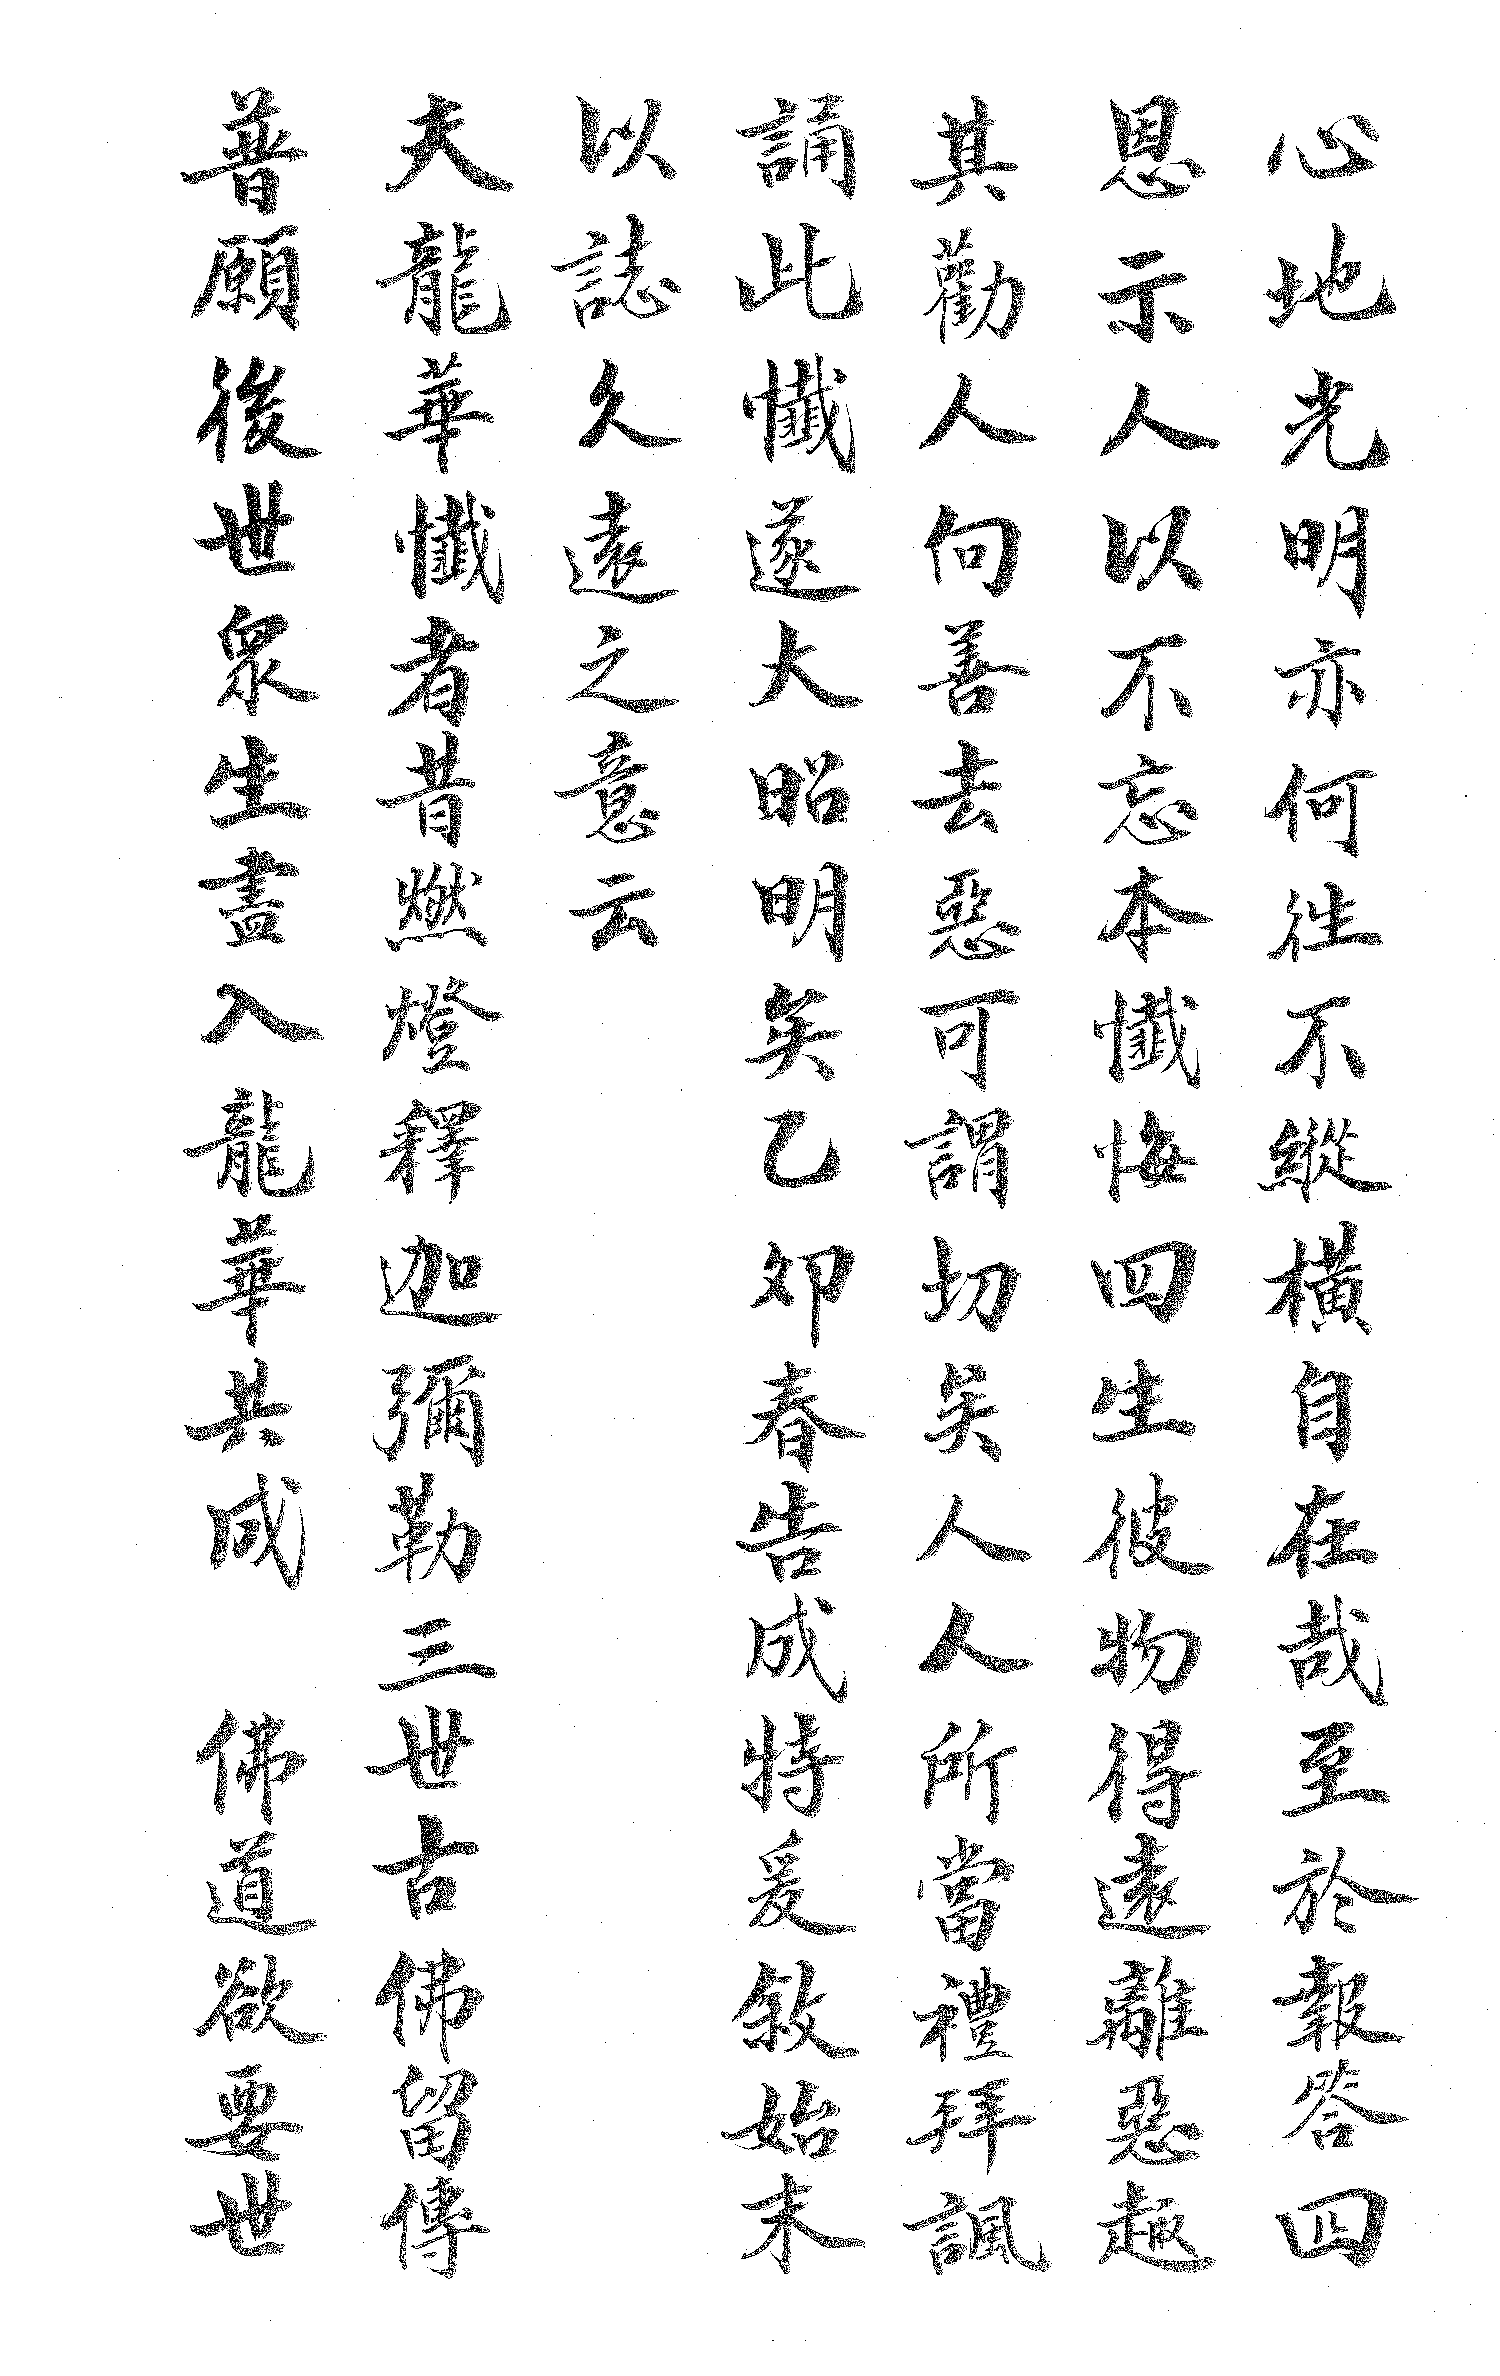 心地光明亦何往不縱橫自在哉至於報答四
恩示人以不忘本懺悔四生彼物得遠離惡趣
其勸人向善去惡可謂切矣人人所當禮拜諷
誦此懺遂大昭明矣乙卯春告成特爰敘始末
以誌久遠之意云
夫龍華懺者昔燃燈釋迦彌勒三世古佛留傳
普願後世眾生盡入龍華共成　佛道欲要世